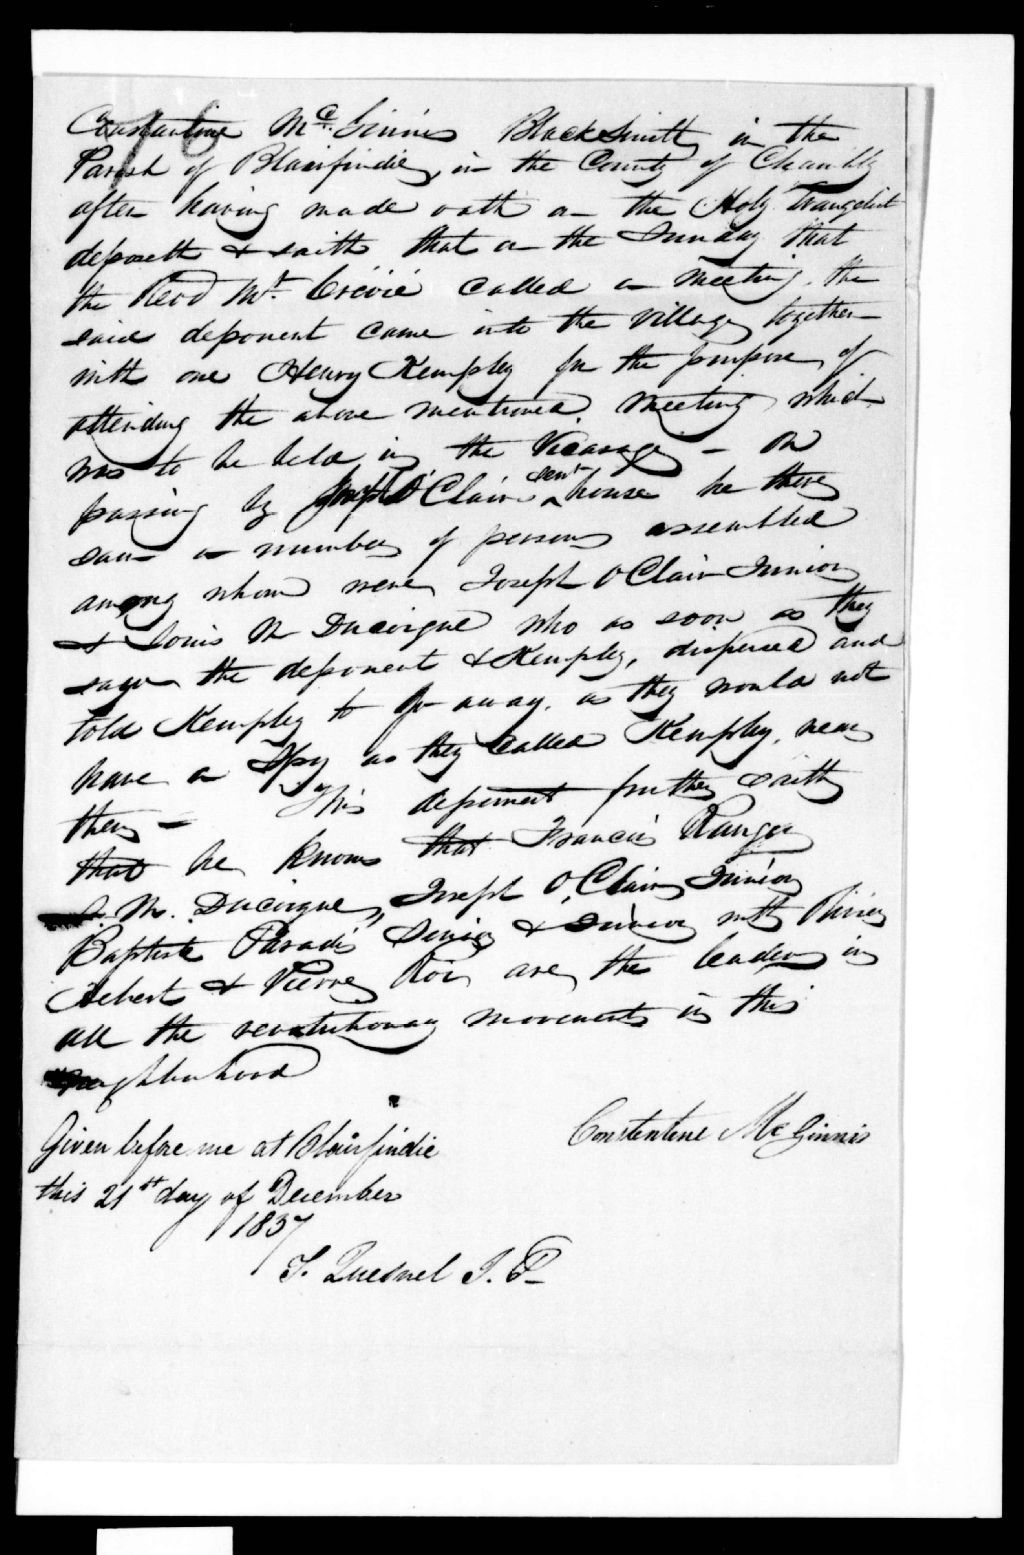 Constantine McGinnis Black Smith in the
Parish of Blairfindie, in the County of Chambly
after having made oath on the Holy Evangelist
deposeth & saith that on the Sunday that
the Revd Mr. Crévié called a meeting, the
said deponent came into the Village together
with one Henry Kempley for the purpose of
attending the above mentioned meeting which
was to be held in the Vicarage - On
passing by Joseph O'Clair senr house he there
saw a number of persons assembled
among whom were Joseph O'Clair Junior
& Louis M Ducoigne who as soon as they
saw the deponent & Kempley, dispersed and
told Kempley to go away. as they would not
have a Spy as they called Kempley, near
them - This deponent further saith
that he knows that Francis Ranger
L. M. Ducoigne, Joseph O'Clair Junior
Baptiste Paradis Senior & Junior with Pierre
Hebert & Pierre Roi, are the leaders in
all the revolutionary movements in this
neighborhood
Constentene McGinnis
Given before me at Blairfindie
this 21st day of December
1837
T. Quesnel J. P.